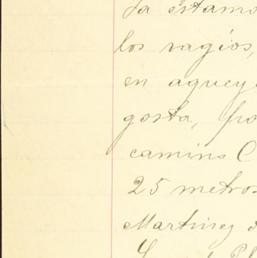 Ya estamo
los vagios,
en aquey
gosta, po
camino C
25 metros
Martinez d